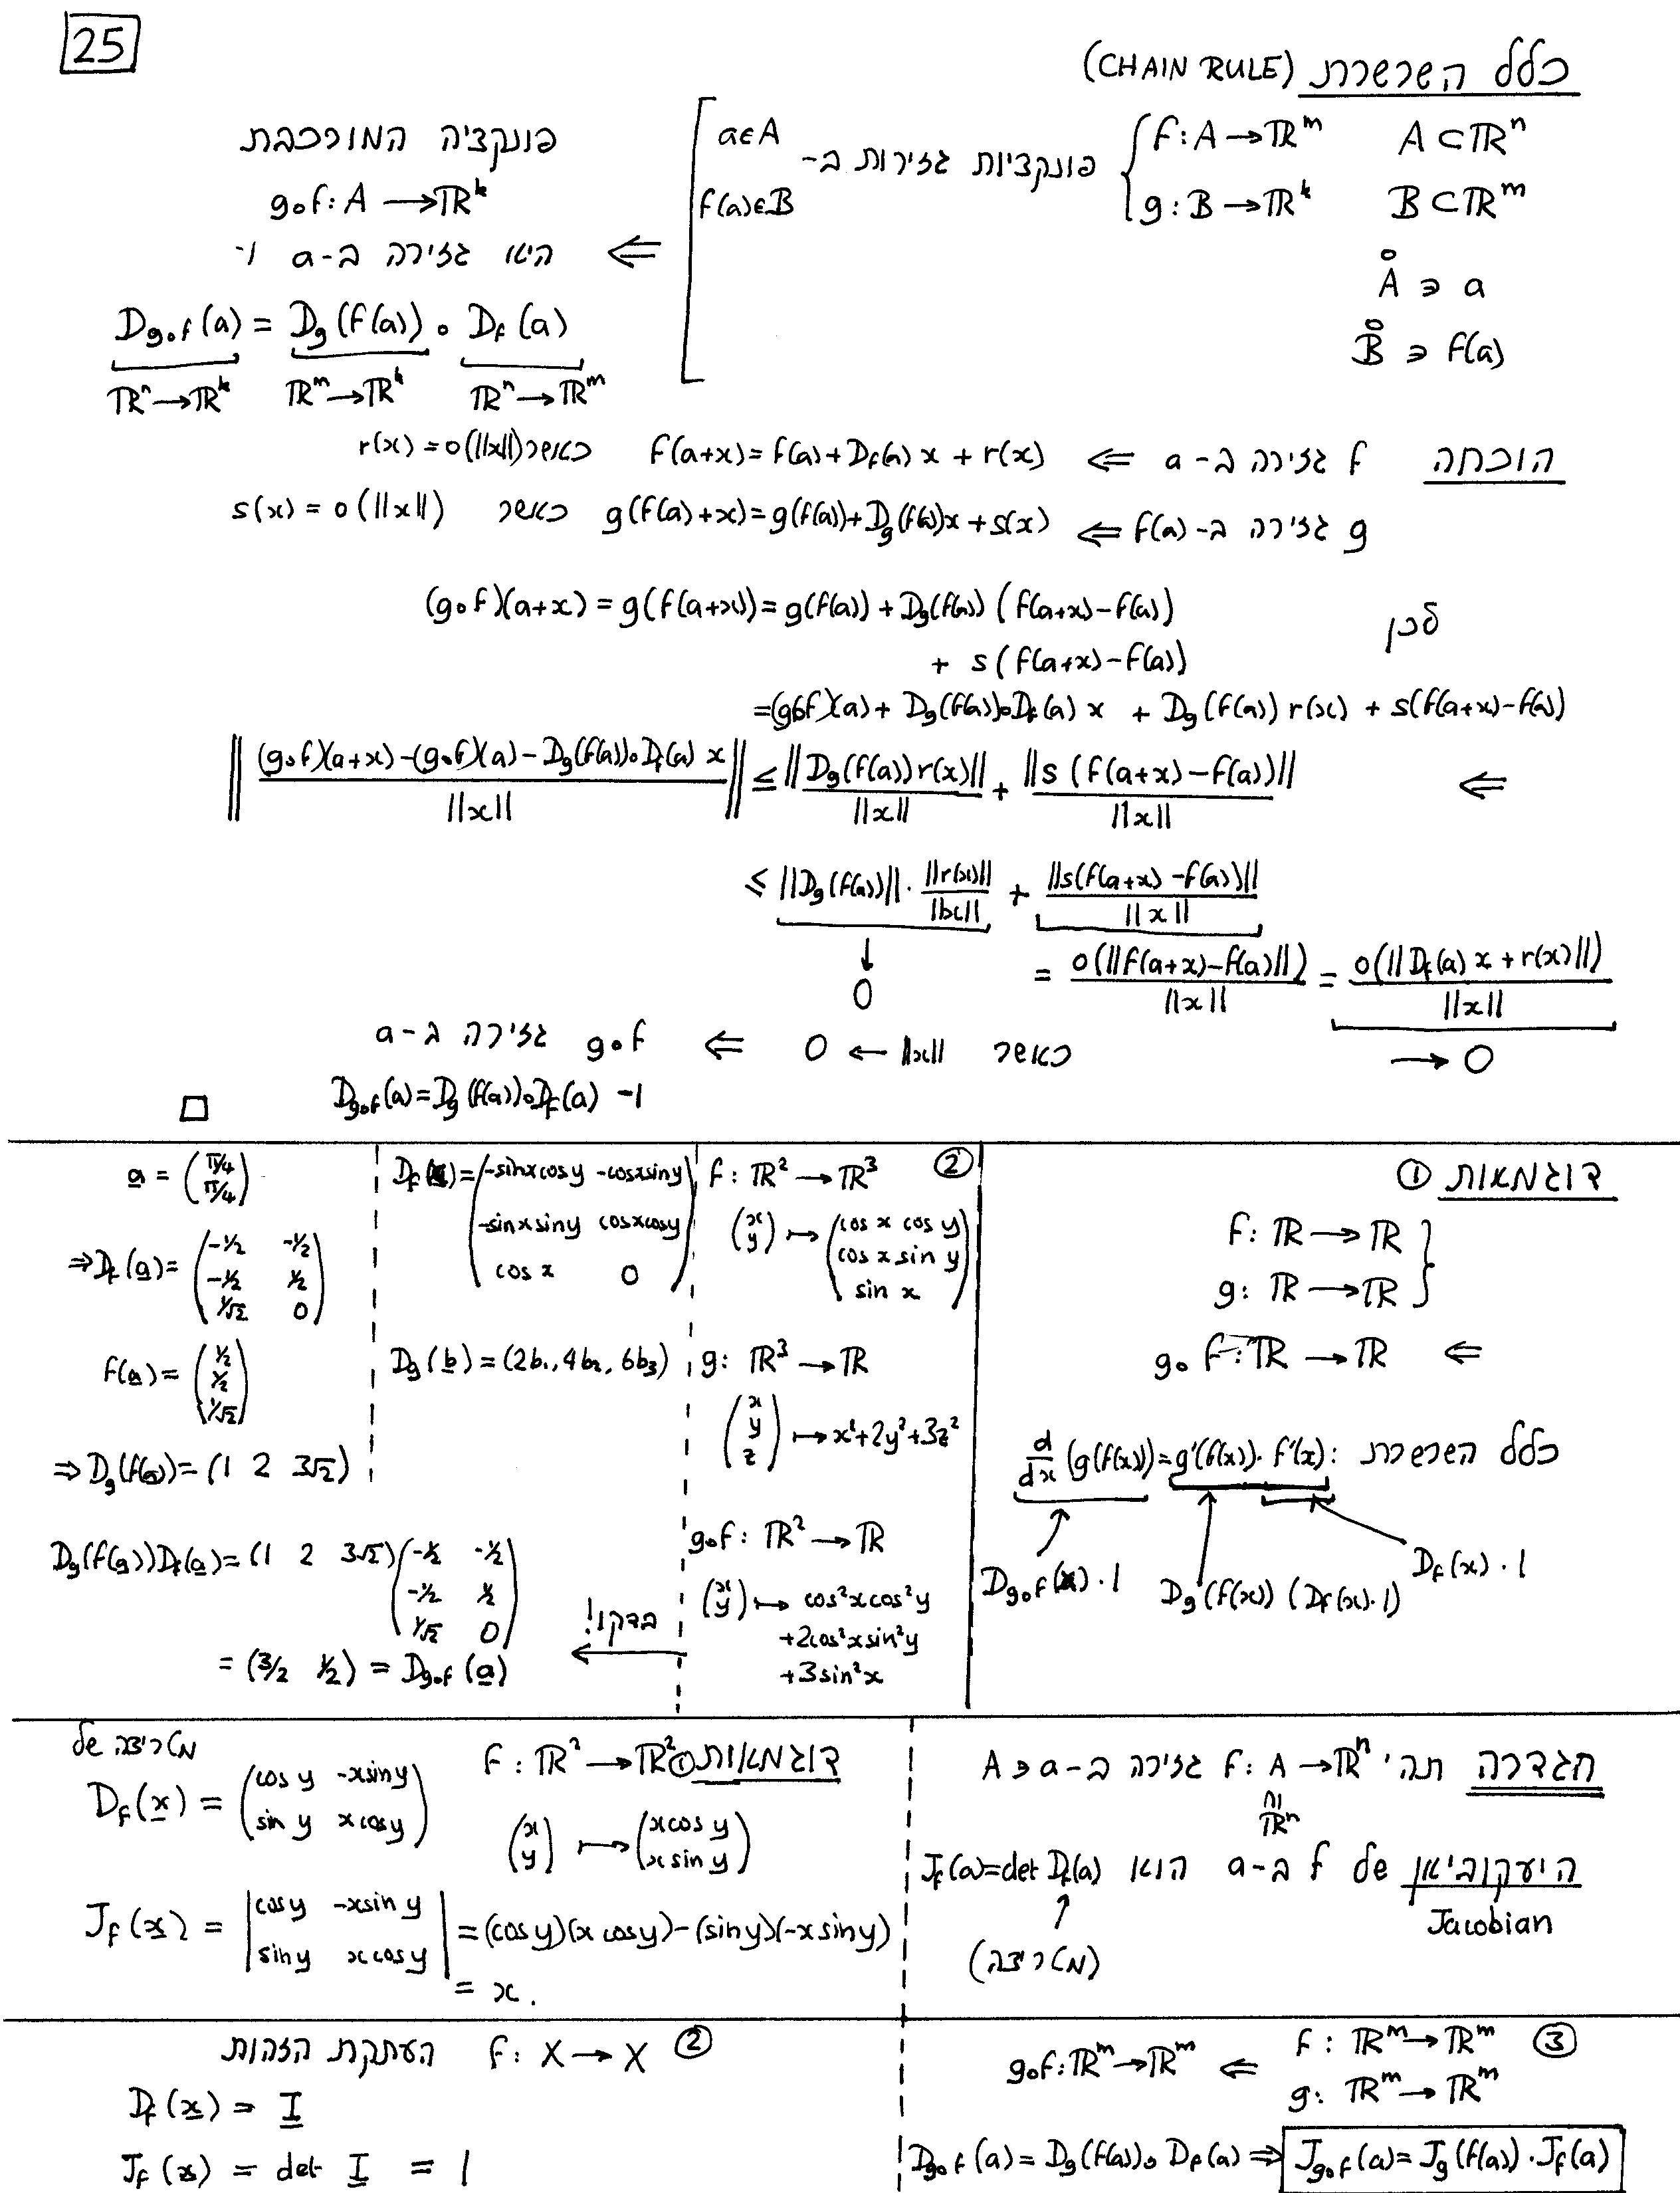 25
כלל השרשרת (CHAIN RULE)
A ⊂ ℝⁿ   f: A → ℝᵐ
B ⊂ ℝᵐ   g: B → ℝᵏ
פונקציות גזירות ב-
a∈A
f(a)∈B
Å ∋ a
B̊ ∋ f(a)
⇐
פונקציה המורכבת
g∘f: A → ℝᵏ
היא גזירה ב-a ו-
D_{g∘f}(a) = D_g(f(a)) ∘ D_f(a)
ℝⁿ→ℝᵏ   ℝᵐ→ℝᵏ   ℝⁿ→ℝᵐ
הוכחה f גזירה ב-a ⇐ f(a+x) = f(a) + D_f(a) x + r(x) כאשר r(x) = o(||x||)
g גזירה ב-f(a) ⇐ g(f(a)+x) = g(f(a)) + D_g(f(a))x + s(x) כאשר s(x) = o(||x||)
לכן (g∘f)(a+x) = g(f(a+x)) = g(f(a)) + D_g(f(a)) (f(a+x)-f(a))
+ s(f(a+x)-f(a))
= (g∘f)(a) + D_g(f(a))∘D_f(a) x + D_g(f(a)) r(x) + s(f(a+x)-f(a))
⇐ || ((g∘f)(a+x) - (g∘f)(a) - D_g(f(a))∘D_f(a) x) / ||x|| || ≤ ||D_g(f(a)) r(x)|| / ||x|| + ||s(f(a+x)-f(a))|| / ||x||
≤ ||D_g(f(a))|| · ||r(x)|| / ||x|| + ||s(f(a+x)-f(a))|| / ||x||
↓
0
= o(||f(a+x)-f(a)||) / ||x|| = o(||D_f(a) x + r(x)||) / ||x||
→ 0
כאשר ||x|| → 0 ⇐ g∘f גזירה ב-a
ו- D_{g∘f}(a) = D_g(f(a))∘D_f(a)
□
דוגמאות ①
f: ℝ → ℝ
g: ℝ → ℝ
⇐ g∘f: ℝ → ℝ
כלל השרשרת: d/dx (g(f(x))) = g'(f(x)) · f'(x)
D_{g∘f}(x)·1   D_g(f(x)) (D_f(x)·1)   D_f(x)·1
② f: ℝ² → ℝ³
(x y) ↦ (cos x cos y
cos x sin y
sin x)
g: ℝ³ → ℝ
(x y z) ↦ x²+2y²+3z²
g∘f: ℝ² → ℝ
(x y) ↦ cos²x cos²y
+2cos²x sin²y
+3sin²x
בדקו!
D_f(x) = (-sinx cosy   -cosx siny
-sinx siny   cosx cosy
cos x   0)
D_g(b) = (2b₁, 4b₂, 6b₃)
a = (π/4 π/4)
⇒ D_f(a) = (-1/2   -1/2
-1/2   1/2
1/√2   0)
f(a) = (1/2 1/2 1/√2)
⇒ D_g(f(a)) = (1   2   3√2)
D_g(f(a))D_f(a) = (1   2   3√2) (-1/2   -1/2
-1/2   1/2
1/√2   0)
= (3/2   1/2) = D_{g∘f}(a)
הגדרה תהי' f: A → ℝⁿ גזירה ב-a∈A
∩
ℝⁿ
היעקוביאן של f ב-a הוא J_f(a) = det D_f(a)
Jacobian
↑
(מטריצה)
דוגמאות ① f: ℝ² → ℝ²
(x y) ↦ (x cos y
x sin y)
מטריצה של
D_f(x) = (cos y   -x sin y
sin y   x cos y)
J_f(x) = |cos y   -x sin y
sin y   x cos y| = (cos y)(x cos y) - (sin y)(-x sin y)
= x.
② f: X → X העתקת הזהות
D_f(x) = I
J_f(x) = det I = 1
③ f: ℝᵐ → ℝᵐ
g: ℝᵐ → ℝᵐ
⇐ g∘f: ℝᵐ → ℝᵐ
D_{g∘f}(a) = D_g(f(a))∘D_f(a) ⇒ J_{g∘f}(a) = J_g(f(a))·J_f(a)